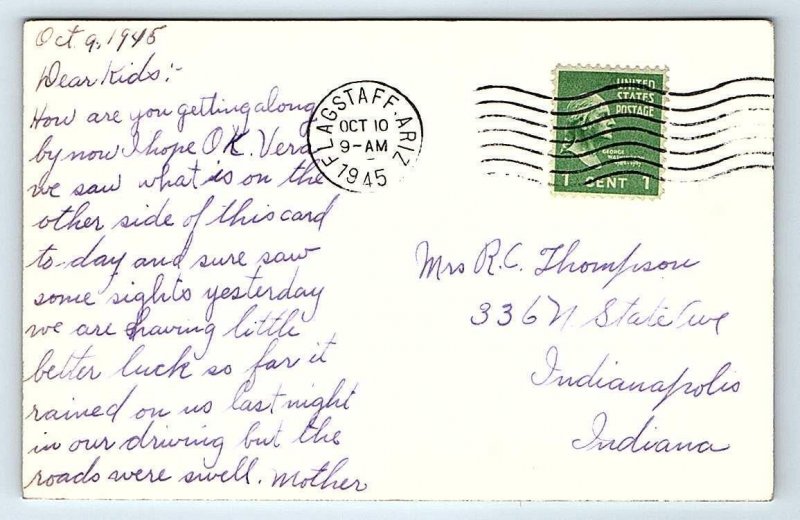 Oct. 9, 1945
Dear Kids:-
How are you getting along
by now I hope OK. Vera
we saw what is on the
other side of this card
to-day and sure saw
some sights yesterday
we are having little
better luck so far it
rained on us last night
in our driving but the
roads were swell. Mother
FLAGSTAFF. ARIZ
OCT 10
9-AM
1945
UNITED
STATES
POSTAGE
GEORGE
WASHINGTON
1 CENT 1
Mrs R.C. Thompson
336 N. State Ave
Indianapolis
Indiana